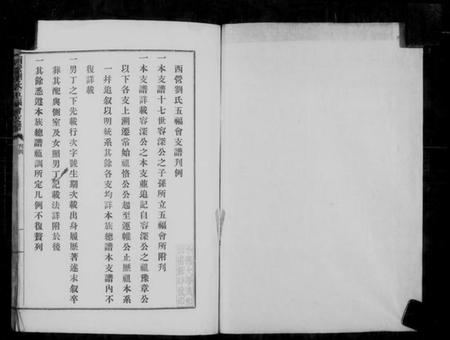 西營劉氏五福會支譜列例
一本支譜十七世容深公之子孫所立五福會所附刋
一本支譜詳載容深公之本支並追記自容深公之祖豫章公
以下各支上溯遷常始祖恪公公起至運幃公止歷祖本系
一并追敘以明統系其餘各支均詳本族總譜本支譜內不
復詳載
一男丁之下先載行次字號生期次載出身履歷著述末敘卒
葬其配與側室及女照男丁記載法詳附於後
一其餘悉遵本族總譜祖訓所定凡例不復贅列